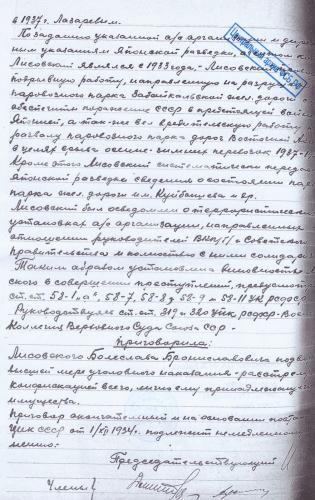 в 1937 г. Лазаревым.
По заданию указанной а/с организации и
ным указаниям Японской разведки,
Лисовский являлся с 1933 года,
подрывную работу, направленную на разру
паровозного парка Забайкальской жел. дороги
обеспечить поражение СССР в предстоящей вой
Японией, а так-же вел вредительскую работу
развалу паровозного парка дорог Восточной
в целях срыва осенне-зимних перевозок 1937-
Кроме этого Лисовский систематически передавал
Японской разведке сведения о состоянии пар
парка жел. дороги им. Куйбышева и др.
Лисовский был осведомлен о террористических
установках а/с организации, направленных
отношении руководителей ВКП/б/ и Советского
правительства и полностью с ними солидар
Таким образом установлена виновность
ского в совершении преступлений, предусмот
ст.ст. 58-1 „а", 58-7, 58-8, 58-9 и 58-11 УК РСФСР
Руководствуясь ст.ст. 319 и 320 УПК РСФСР Воен
Коллегия Верховного Суда Союза ССР -
Приговорила:
Лисовского Болеслава Брониславовича подверг
высшей мере уголовного наказания - расстрелу
конфискацией всего, лично ему принадлежащего
имущества.
Приговор окончательный и на основании поста
ЦИК СССР от 1/XII 1934 г. подлежит немедленному
нению.
Председательствующий
Члены